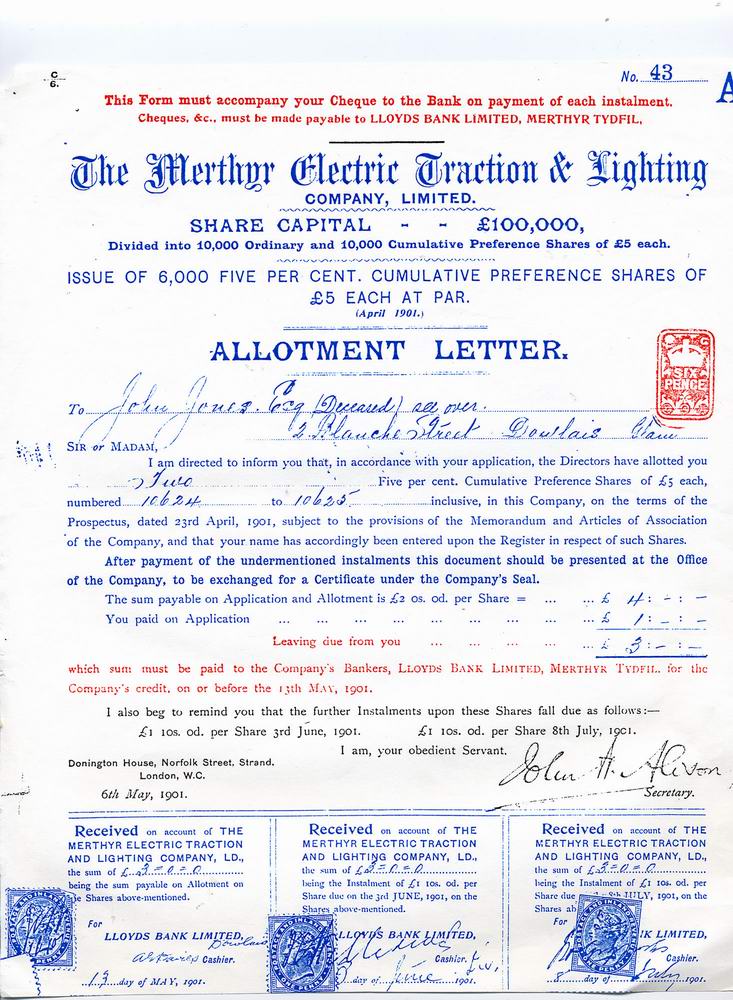 C
6.
No. 43
A
This Form must accompany your Cheque to the Bank on payment of each instalment.
Cheques, &c., must be made payable to LLOYDS BANK LIMITED, MERTHYR TYDFIL.
The Merthyr Electric Traction & Lighting
COMPANY, LIMITED.
SHARE CAPITAL - - £100,000,
Divided into 10,000 Ordinary and 10,000 Cumulative Preference Shares of £5 each.
ISSUE OF 6,000 FIVE PER CENT. CUMULATIVE PREFERENCE SHARES OF
£5 EACH AT PAR.
(April 1901.)
ALLOTMENT LETTER.
SIX
PENCE
To John Jones. Esq (Deceased) see over.
2 Blanche Street Dowlais Glam
SIR OR MADAM,
I am directed to inform you that, in accordance with your application, the Directors have allotted you
Two Five per cent. Cumulative Preference Shares of £5 each,
numbered 10624 to 10625 inclusive, in this Company, on the terms of the
Prospectus, dated 23rd April, 1901, subject to the provisions of the Memorandum and Articles of Association
of the Company, and that your name has accordingly been entered upon the Register in respect of such Shares.
After payment of the undermentioned instalments this document should be presented at the Office
of the Company, to be exchanged for a Certificate under the Company's Seal.
The sum payable on Application and Allotment is £2 0s. 0d. per Share = ... ... £ 4 : - : -
You paid on Application ... ... ... ... ... ... ... ... ... £ 1 : - : -
Leaving due from you ... ... ... ... ... £ 3 : - : -
which sum must be paid to the Company's Bankers, LLOYDS BANK LIMITED, MERTHYR TYDFIL, for the
Company's credit, on or before the 13th MAY, 1901.
I also beg to remind you that the further Instalments upon these Shares fall due as follows:—
£1 10s. 0d. per Share 3rd June, 1901. £1 10s. 0d. per Share 8th July, 1901.
I am, your obedient Servant,
Donington House, Norfolk Street, Strand,
London, W.C.
6th May, 1901.
John H. Alison
Secretary.
Received on account of THE
MERTHYR ELECTRIC TRACTION
AND LIGHTING COMPANY, LD.,
the sum of £ 3=0=0
being the sum payable on Allotment on
the Shares above-mentioned.
For
LLOYDS BANK LIMITED, Dowlais
Cashier.
13 day of MAY, 1901.
Received on account of THE
MERTHYR ELECTRIC TRACTION
AND LIGHTING COMPANY, LD.,
the sum of £3=0=0
being the Instalment of £1 10s. od. per
Share due on the 3rd JUNE, 1901, on the
Shares above-mentioned.
LLOYDS BANK LIMITED,
Cashier.
day of June 1901.
Received on account of THE
MERTHYR ELECTRIC TRACTION
AND LIGHTING COMPANY, LD.,
the sum of £3=0=0
being the Instalment of £1 10s. od. per
Share due 8th JULY, 1901, on the
Shares ab
For
BANK LIMITED,
Cashier.
8 day of July 1901.